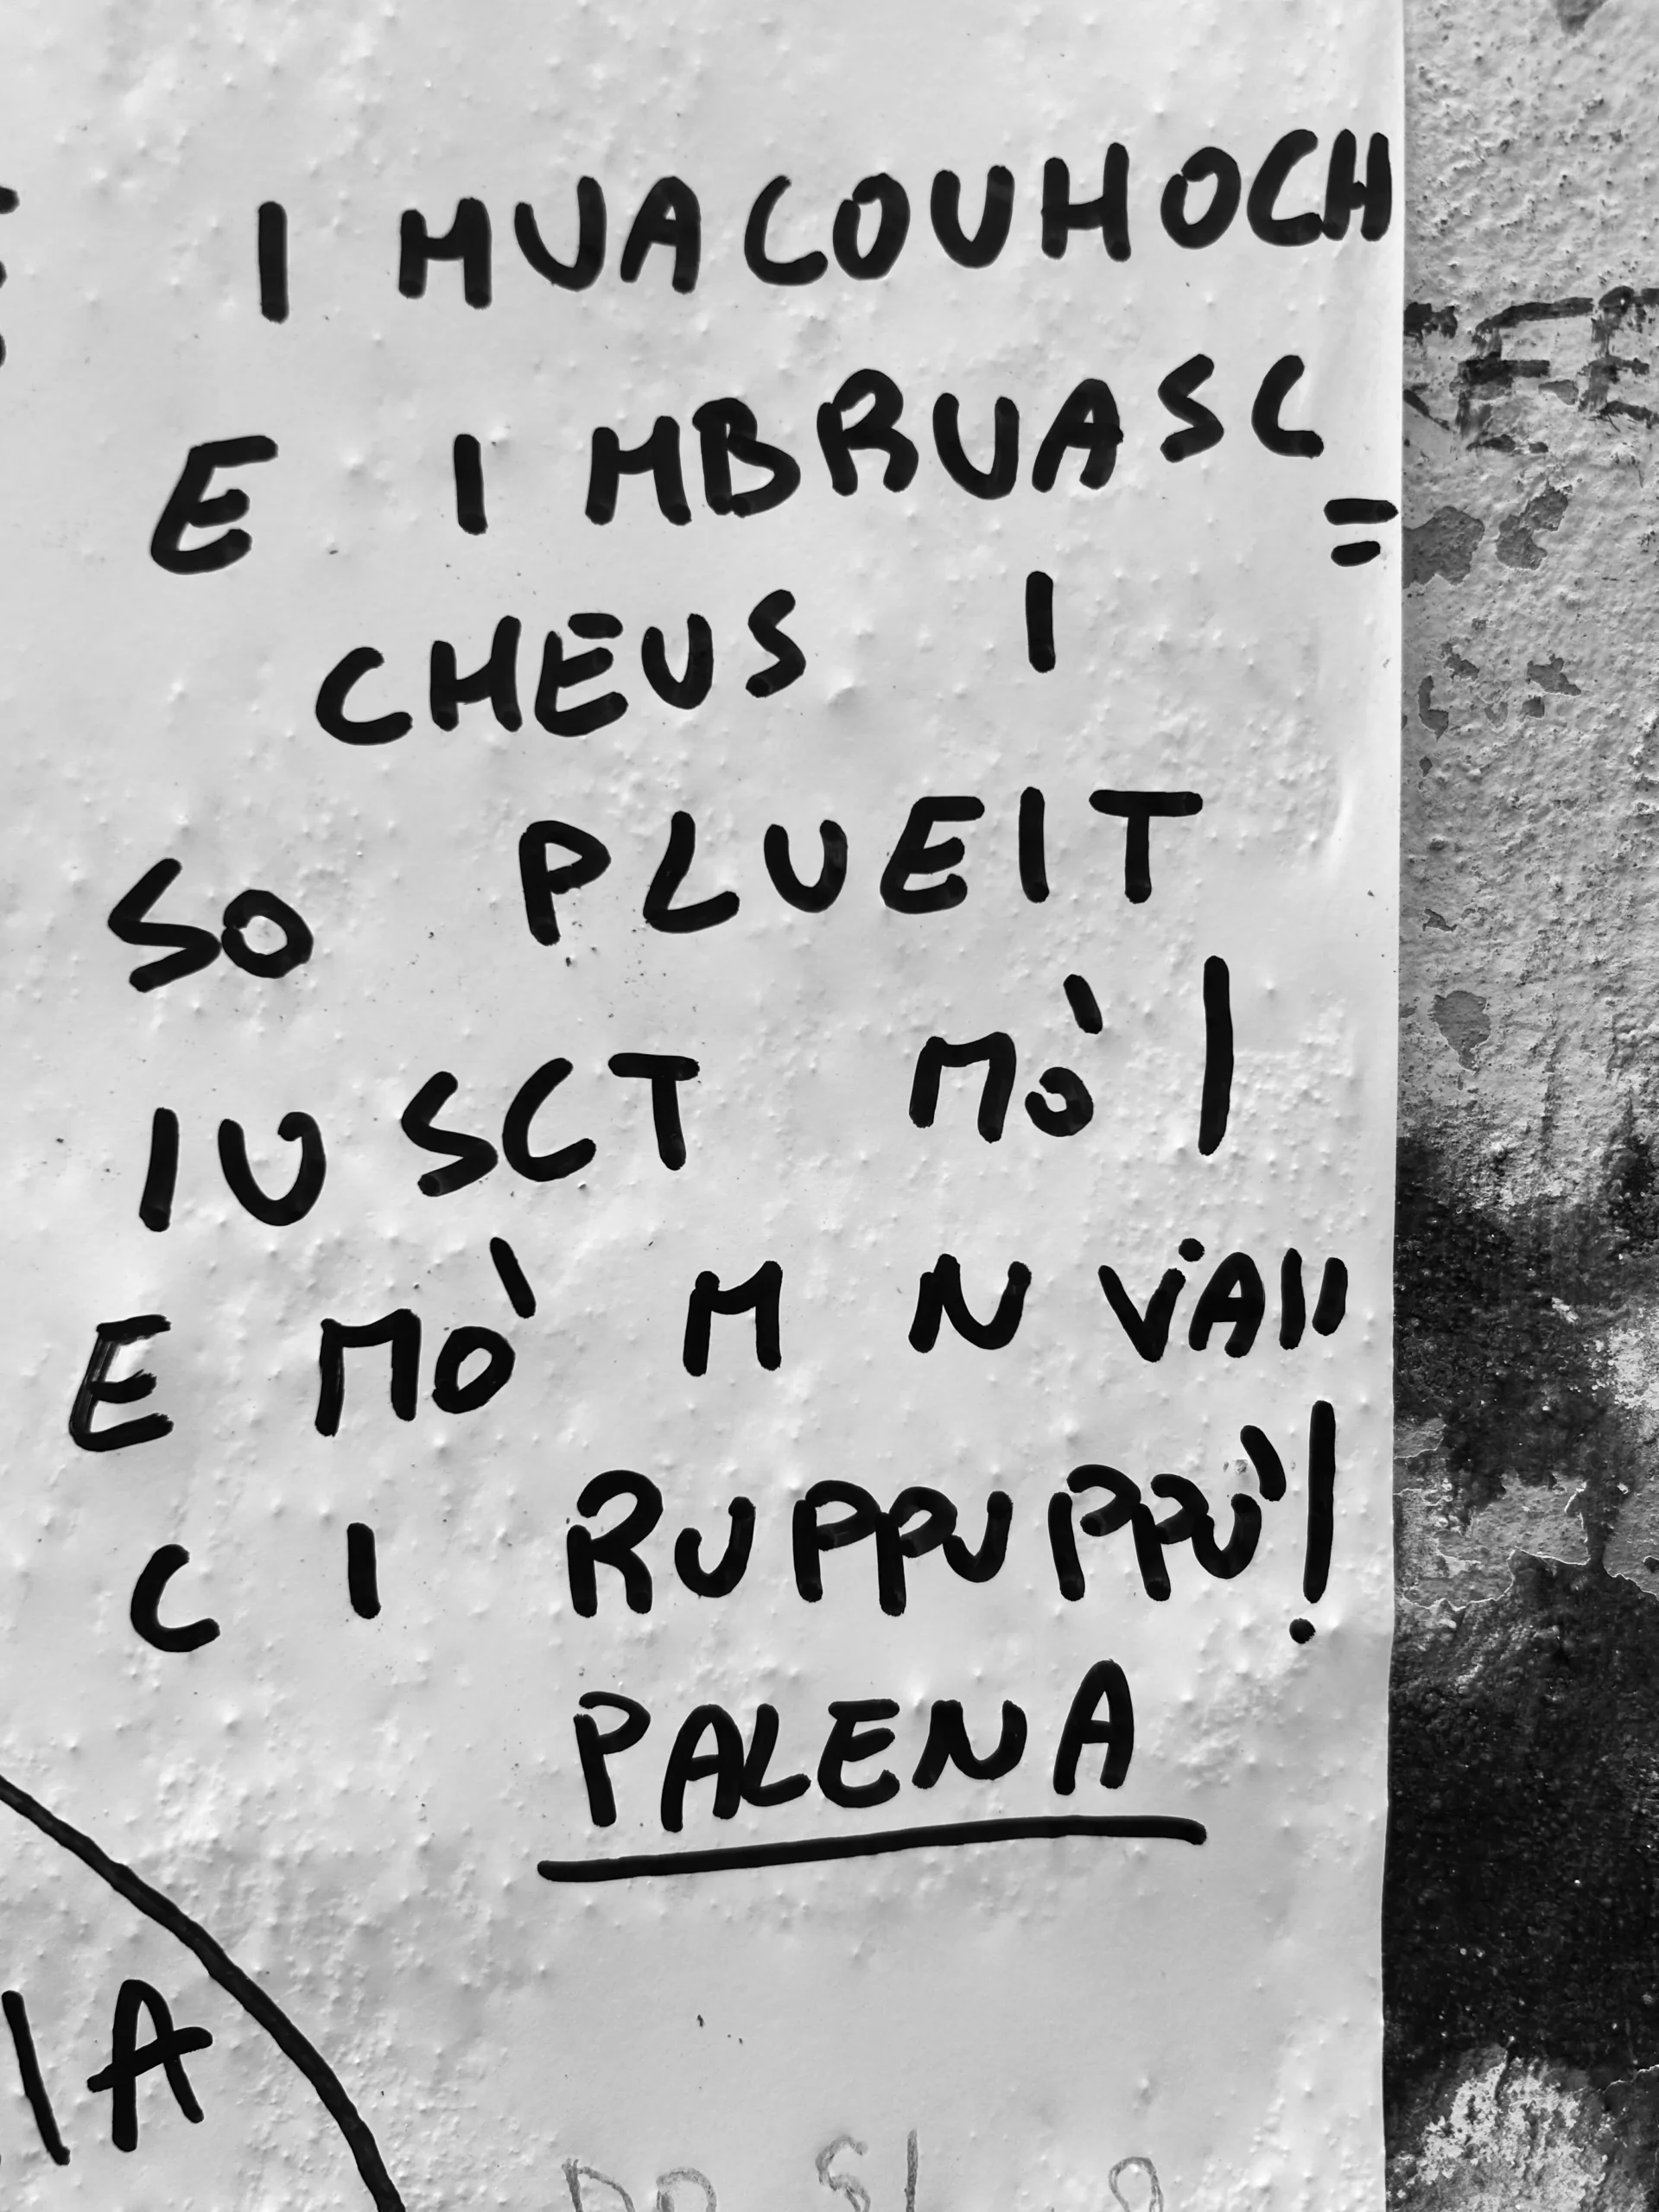 I MUACOUHOCH
E I MBRUASC=
CHEUS I
SO PLUEIT
IUSCT MÒ!
E MÒ M N VIAII
C I RUPPUPPÙ!
PALENA
IA